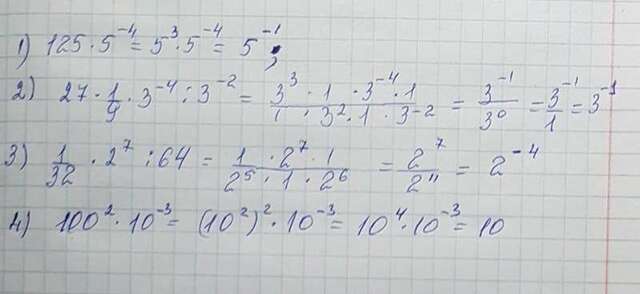 1) 125 · 5⁻⁴ = 5³ · 5⁻⁴ = 5⁻¹;
2) 27 · 1/9 · 3⁻⁴ : 3⁻² = (3³ · 1 · 3⁻⁴ · 1)/(1 · 3² · 1 · 3⁻²) = 3⁻¹/3⁰ = 3⁻¹/1 = 3⁻¹
3) 1/32 · 2⁷ : 64 = (1 · 2⁷ · 1)/(2⁵ · 1 · 2⁶) = 2⁷/2¹¹ = 2⁻⁴
4) 100² · 10⁻³ = (10²)² · 10⁻³ = 10⁴ · 10⁻³ = 10